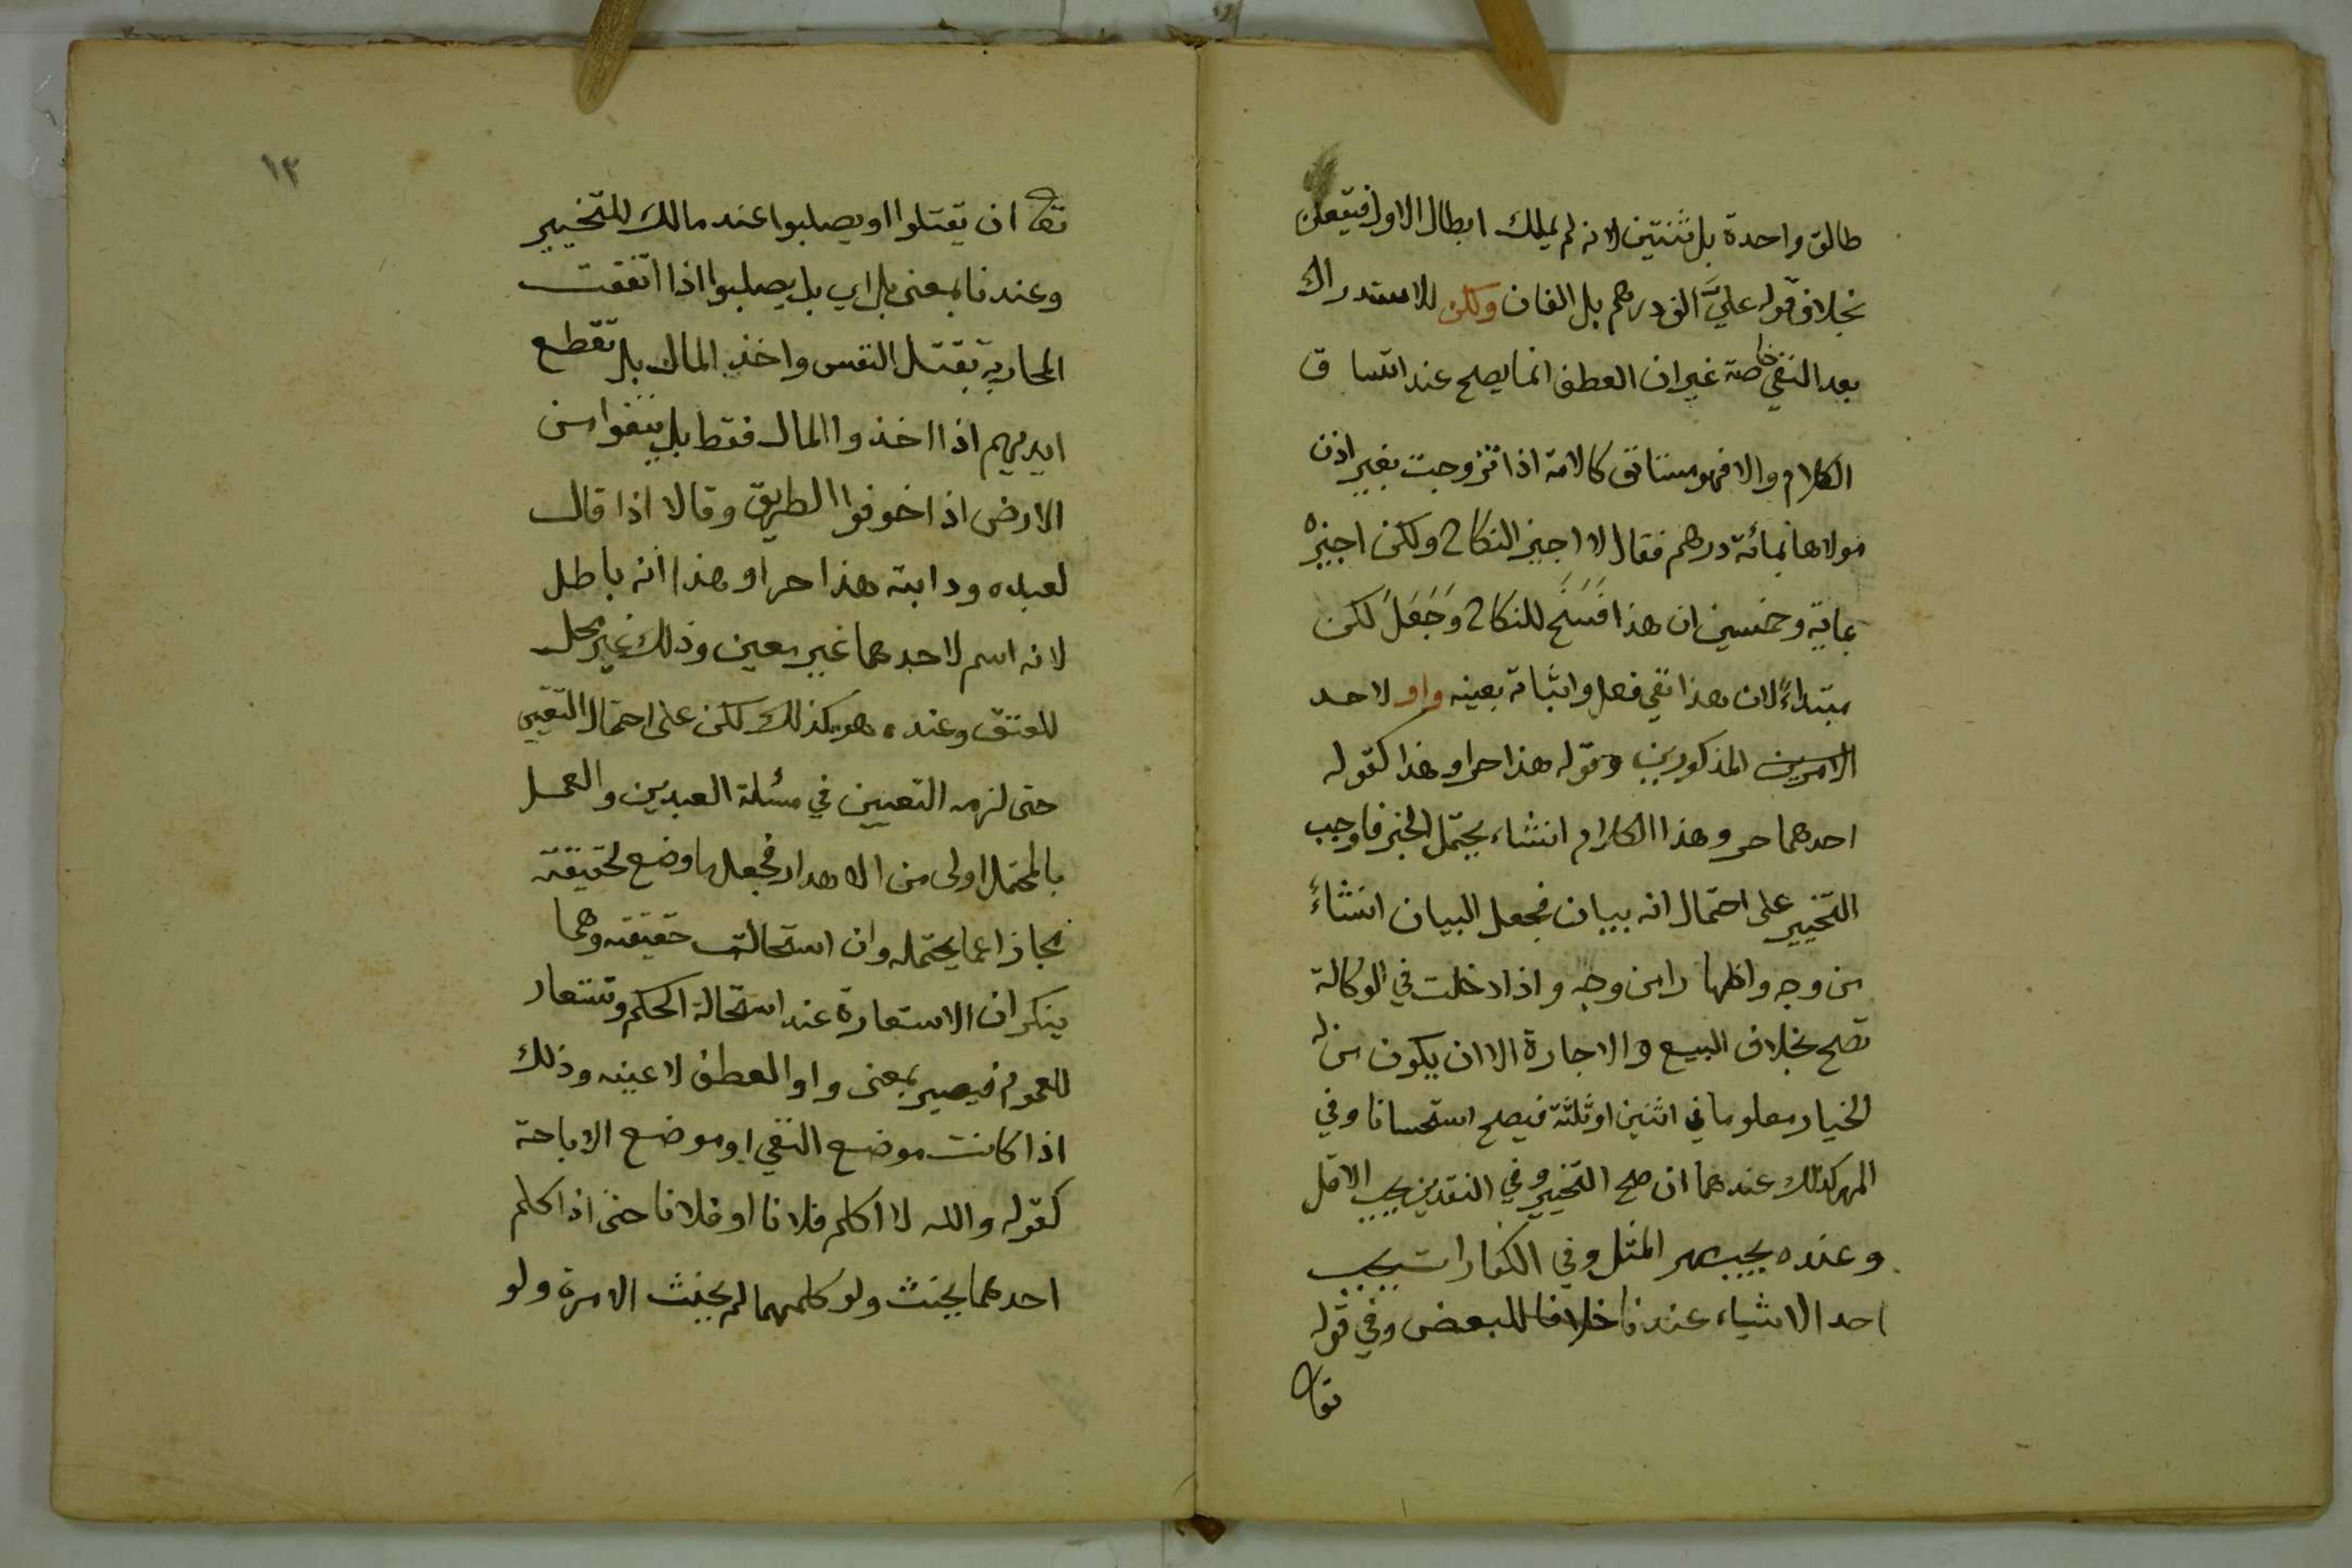 طالق واحدة بل ثنتين لانه لم يملك ابطال الاول فيقعن
بخلاف قوله عليَّ الف درهم بل الفان ولكن للاستدراك
بعد النفي خاصة غير ان العطف انما يصلح عند اتساق
الكلام والا فهو مستانف كالامة اذا تزوجت بغير اذن
مولاها بمائة درهم فقال لا اجيز النكاح ولكن اجيزه
بماية وخمسين ان هذا فَسَخَ للنكاح وَجَعَلَ لكن
مبتداءً لان هذا نفي فعل واثباته بعينه واو لاحد
الامرين المذكورين وقوله هذا حر او هذا كقوله
احدهما حر وهذا الكلام انشاء يحتمل الخبر فاوجب
التخيير على احتمال انه بيان فجعل البيان انشاءً
من وجه واظهارا من وجه واذا دخلت في الوكالة
تصح بخلاف البيع والاجارة الا ان يكون من له
الخيار معلوما في اثنين او ثلثة فيصح استحسانا وفي
المهر كذلك عندهما ان صح التخيير وفي النقدين يجب الاقل
وعنده يجب مهر المثل وفي الكفارات يجب
احد الاشياء عندنا خلافا للبعض وفي قوله
تعا
١٣
تعا ان يقتلوا او يصلبوا عند مالك للتخيير
وعندنا بمعنى بل اي بل يصلبوا اذا اتفقت
المحاربة بقتل النفس واخذ المال بل تقطع
ايديهم اذا اخذوا المال فقط بل ينفوا من
الارض اذا خوفوا الطريق وقالا اذا قال
لعبده ودابته هذا حر او هذا انه باطل
لانه اسم لاحدهما غير معين وذلك غير محل
للعتق وعنده هو كذلك لكن على احتمال التعيين
حتى لزمه التعيين في مسئلة العبدين والعمل
بالمحتمل اولى من الاهدار فجعل ما وضع لحقيقته
مجازا عما يحتمله وان استحالت حقيقته وهما
ينكران الاستعارة عند استحالة الحكم وتستعار
للعموم فيصير بمعنى واو العطف لا عينه وذلك
اذا كانت موضع النفي او موضع الاباحة
كقوله والله لا اكلم فلانا او فلانا حتى اذا كلم
احدهما يحنث ولو كلمهما لم يحنث الا مرة ولو